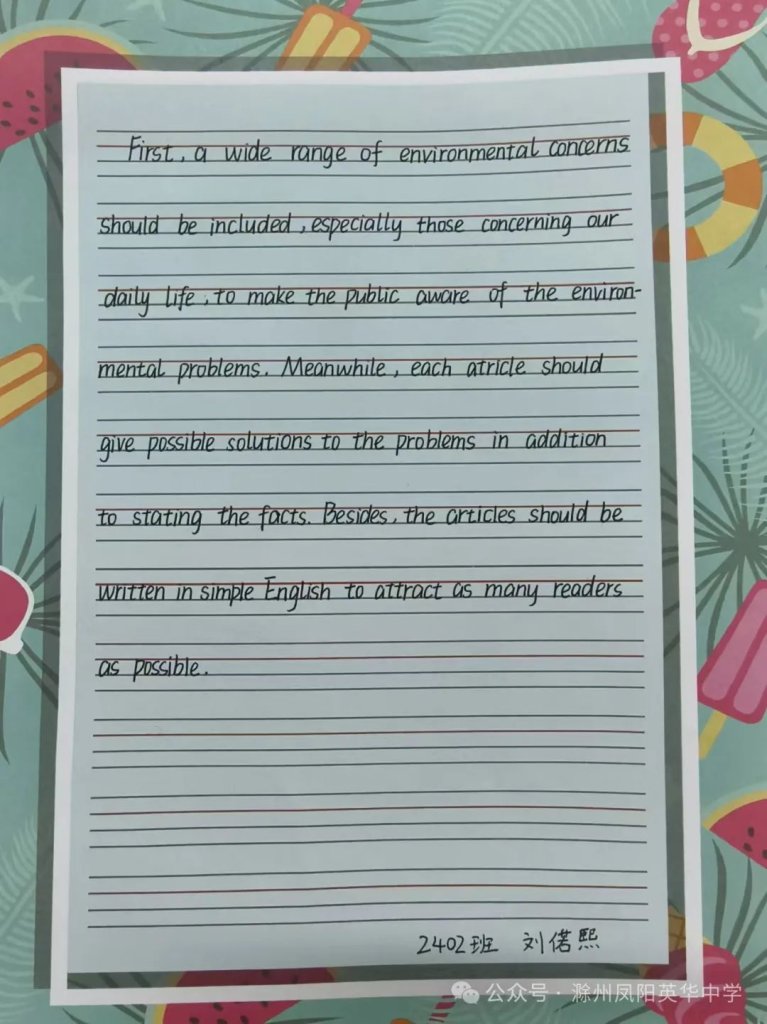 First, a wide range of environmental concerns
should be included, especially those concerning our
daily life, to make the public aware of the environ-
mental problems. Meanwhile, each atricle should
give possible solutions to the problems in addition
to stating the facts. Besides, the articles should be
written in simple English to attract as many readers
as possible.
2402班 刘偌熙
公众号·滁州凤阳英华中学